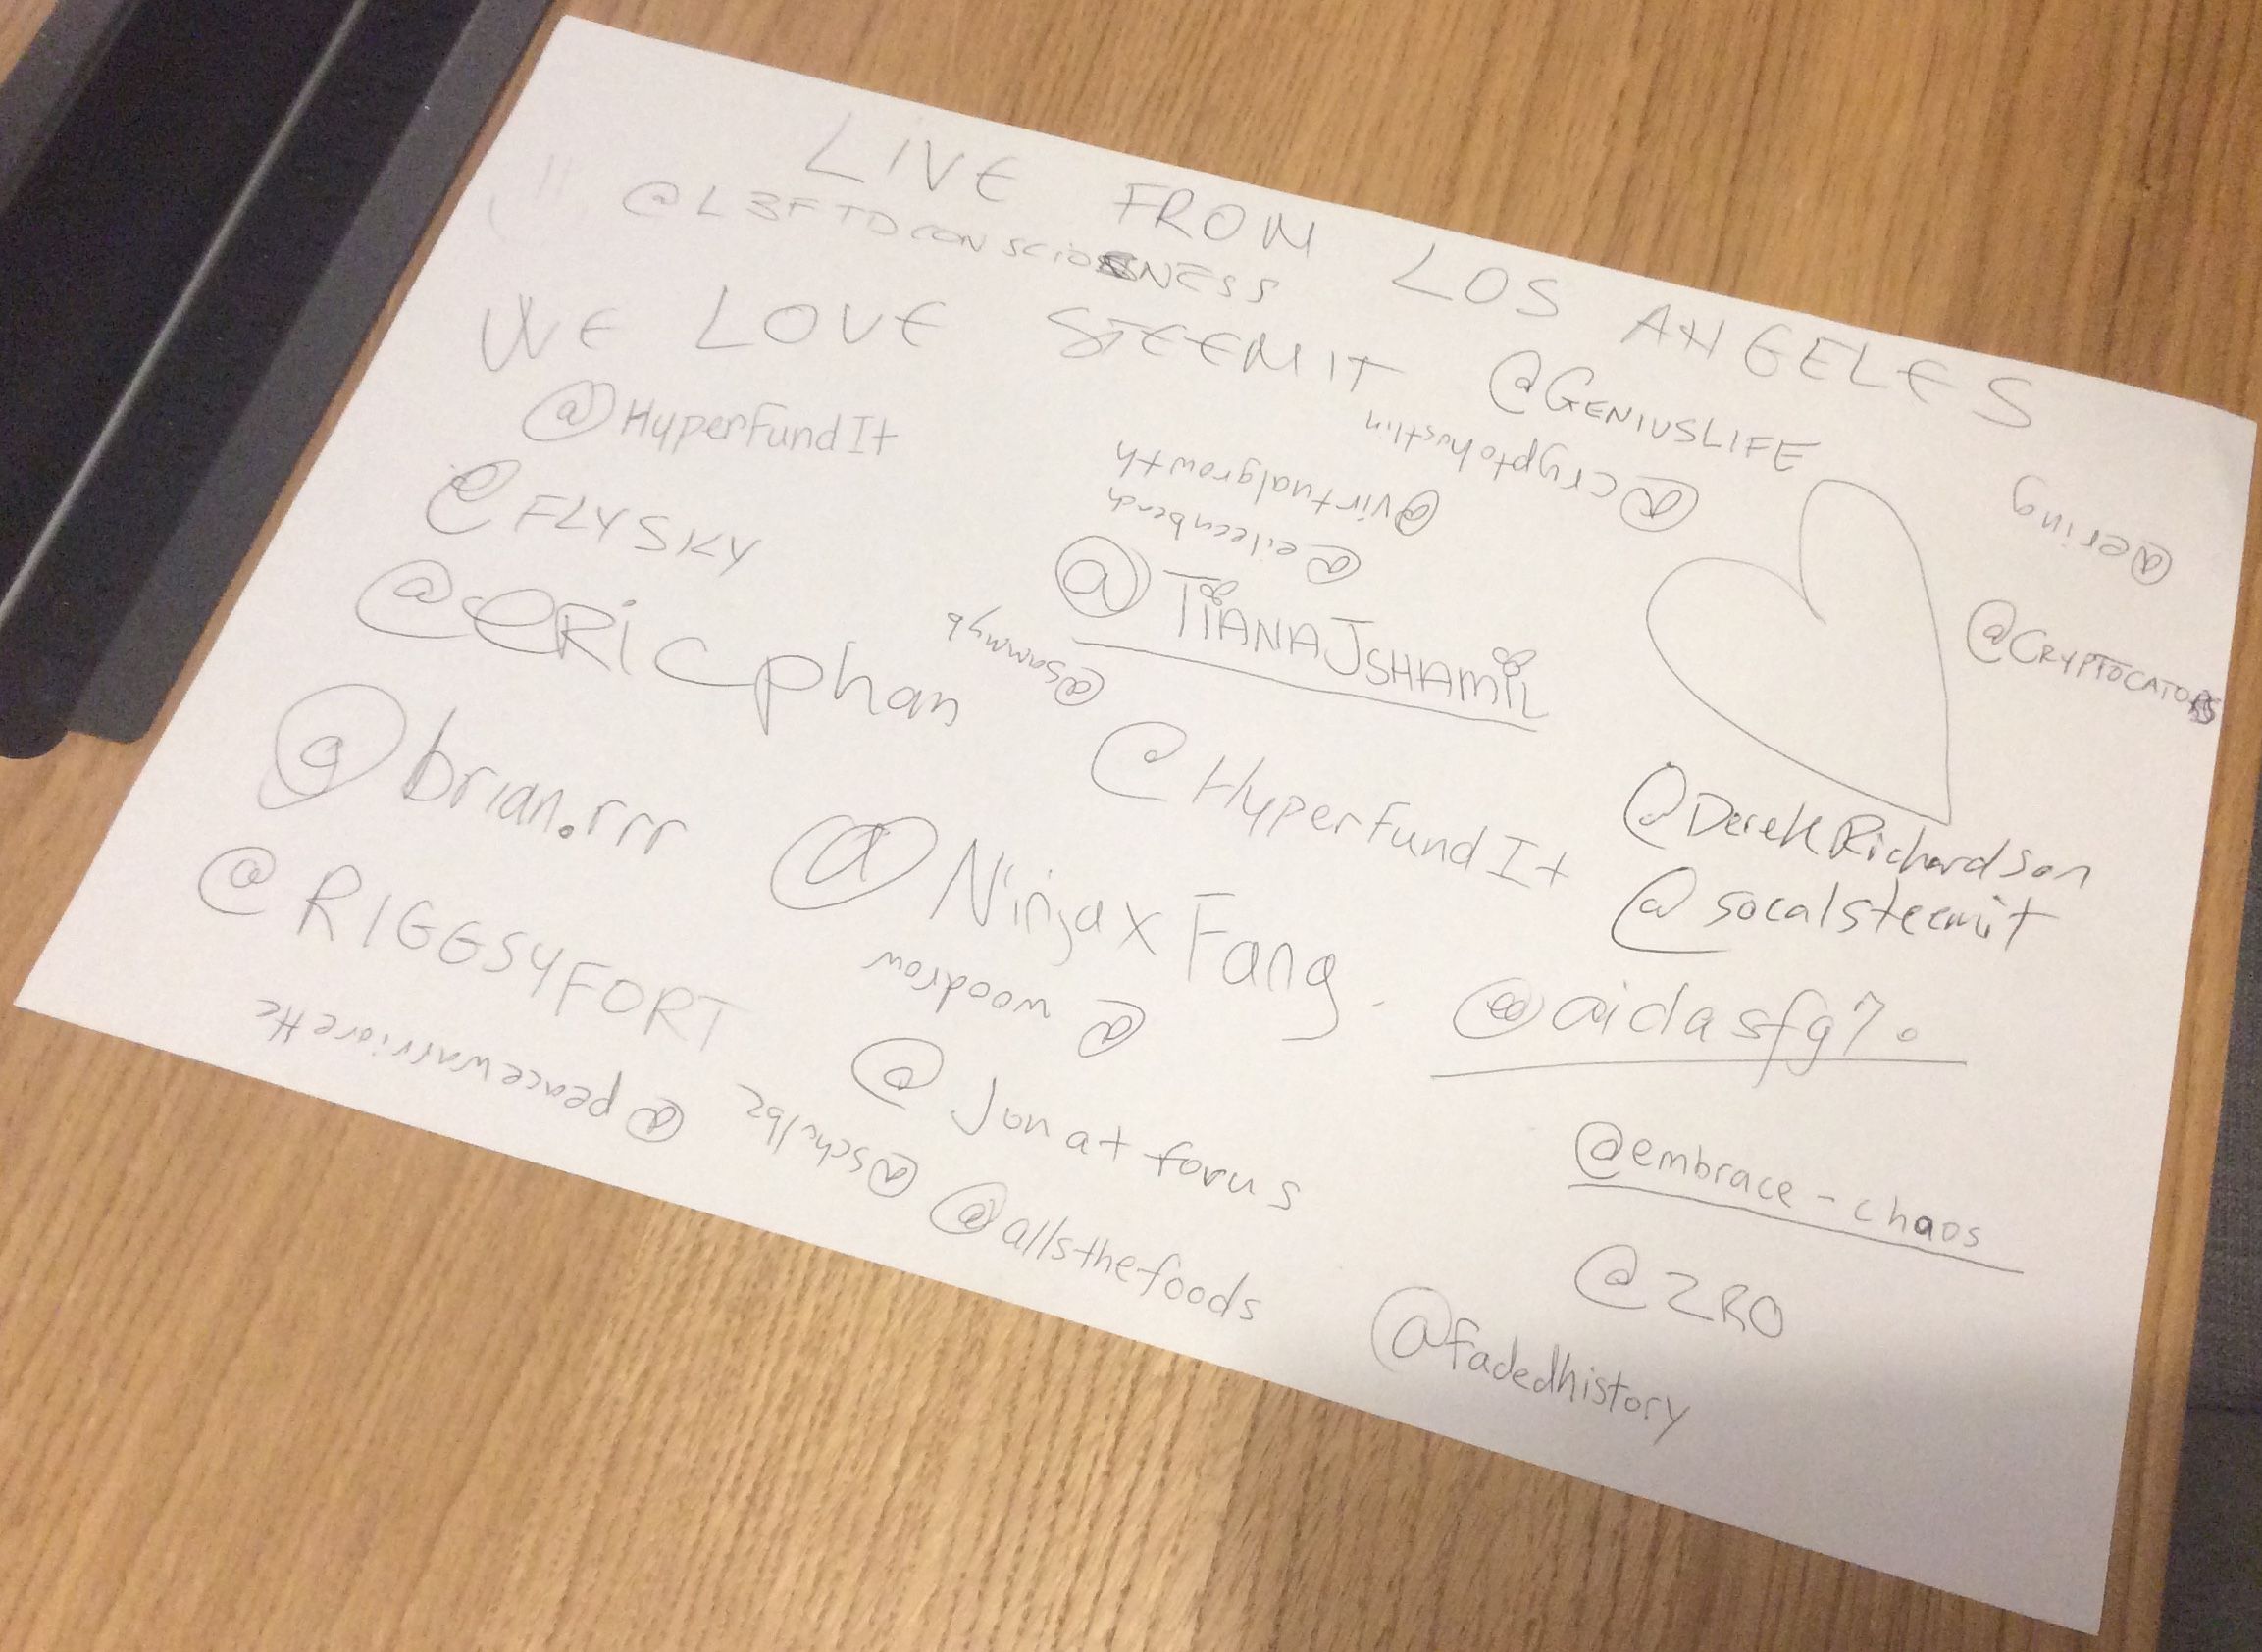 LIVE FROM LOS ANGELES
@L3FTDCONSCIOSNESS
WE LOVE STEEMIT
@GENIUSLIFE
@HyperFundIt
@cryptohustlin
@virtualgrowth
@ering
@FLYSKY
@eileenbeach
@TIANAJSHAMIL
@CRYPTOCATORS
@ericphan
@sammyb
@brian.rrr
@HyperfundIt
@DerekRichardson
@NinjaxFang.
@socalsteemit
@RIGGSYFORT
@woodrow
@aidasfg7.
@peacewarriorette
@schulbz
@Jonatforus
@embrace-chaos
@allsthefoods
@ZRO
@fadedhistory